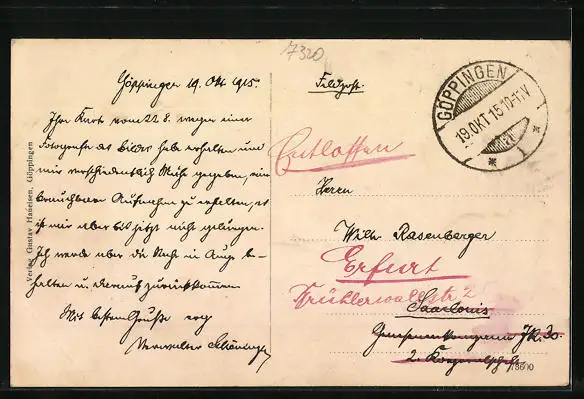 7320
Göppingen 19. Okt. 1915.
Ihre Karte vom 22.8. wegen einer
Fotografie des Bildes habe erhalten und
mir verschiedentlich Mühe gegeben, eine
brauchbare Aufnahme zu erhalten, es
ist mir aber bis jetzt nicht gelungen.
Ich werde aber die Sache im Auge be-
halten u. darauf zurückkommen
Mit besten Grüße
Verwalter
Verlag Gustav Haueisen, Göppingen
Feldpost.
GÖPPINGEN
19.OKT.15.10-11V.
Entlassen
Herrn
Wilh. Rasenberger
Erfurt
Saarlouis
JR. 30.
2.
78600